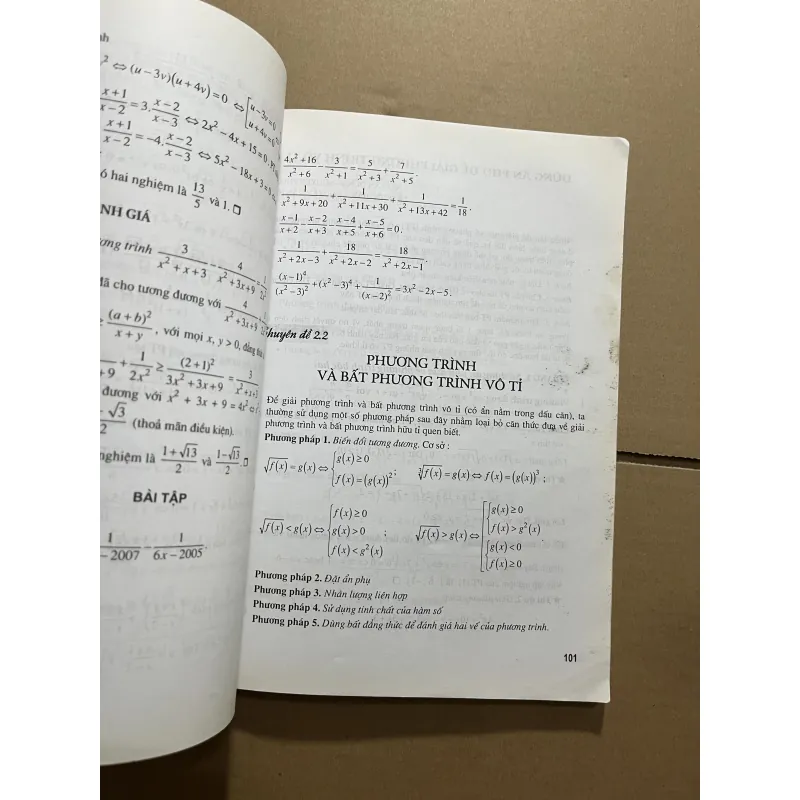 nh
² ⇔ (u−3v)(u+4v)=0 ⇔ [u−3v=0
u+4v=0
x+1/x−2 = 3.x−2/x−3 ⇔ 2x²−4x+15=0.
x+1/x−2 = −4.x−2/x−3 ⇔ 5x²−18x+3=0
ó hai nghiệm là 13/5 và 1. □
NH GIÁ
ương trình 3/x²+x+3 − 4/x²+3x+9
đã cho tương đương với 4/x²+3x+9
≥ (a+b)²/x+y, với mọi x, y > 0,
+9 + 1/2x² ≥ (2+1)²/3x²+3x+9 = 3/x²+x+3
đương với x² + 3x + 9 = 4x²
−√3/2 (thoả mãn điều kiện).
nghiệm là 1+√13/2 và 1−√13/2. □
BÀI TẬP
1/−2007 − 1/6x−2005.
4x²+16/x²+6 − 3/x²+1 = 5/x²+3 + 7/x²+5.
1/x²+9x+20 + 1/x²+11x+30 + 1/x²+13x+42 = 1/18.
x−1/x+2 − x−2/x+3 − x−4/x+5 + x−5/x+6 = 0.
1/x²+2x−3 + 18/x²+2x−2 = 18/x²+2x−1.
(x−1)⁴/(x²−3)² + (x²−3)⁴ + 1/(x−2)² = 3x²−2x−5.
huyên đề 2.2
PHƯƠNG TRÌNH
VÀ BẤT PHƯƠNG TRÌNH VÔ TỈ
Để giải phương trình và bất phương trình vô tỉ (có ẩn nằm trong dấu căn), ta
thường sử dụng một số phương pháp sau đây nhằm loại bỏ căn thức đưa về giải
phương trình và bất phương trình hữu tỉ quen biết.
Phương pháp 1. Biến đổi tương đương. Cơ sở :
√f(x) = g(x) ⇔ {g(x) ≥ 0
f(x) = (g(x))² ; ∛f(x) = g(x) ⇔ f(x) = (g(x))³ ;
√f(x) < g(x) ⇔ {f(x) ≥ 0
g(x) > 0
f(x) < g²(x) ; √f(x) > g(x) ⇔ [{g(x) ≥ 0
f(x) > g²(x).
{g(x) < 0
f(x) ≥ 0
Phương pháp 2. Đặt ẩn phụ
Phương pháp 3. Nhân lượng liên hợp
Phương pháp 4. Sử dụng tính chất của hàm số
Phương pháp 5. Dùng bất đẳng thức để đánh giá hai vế của phương trình.
101